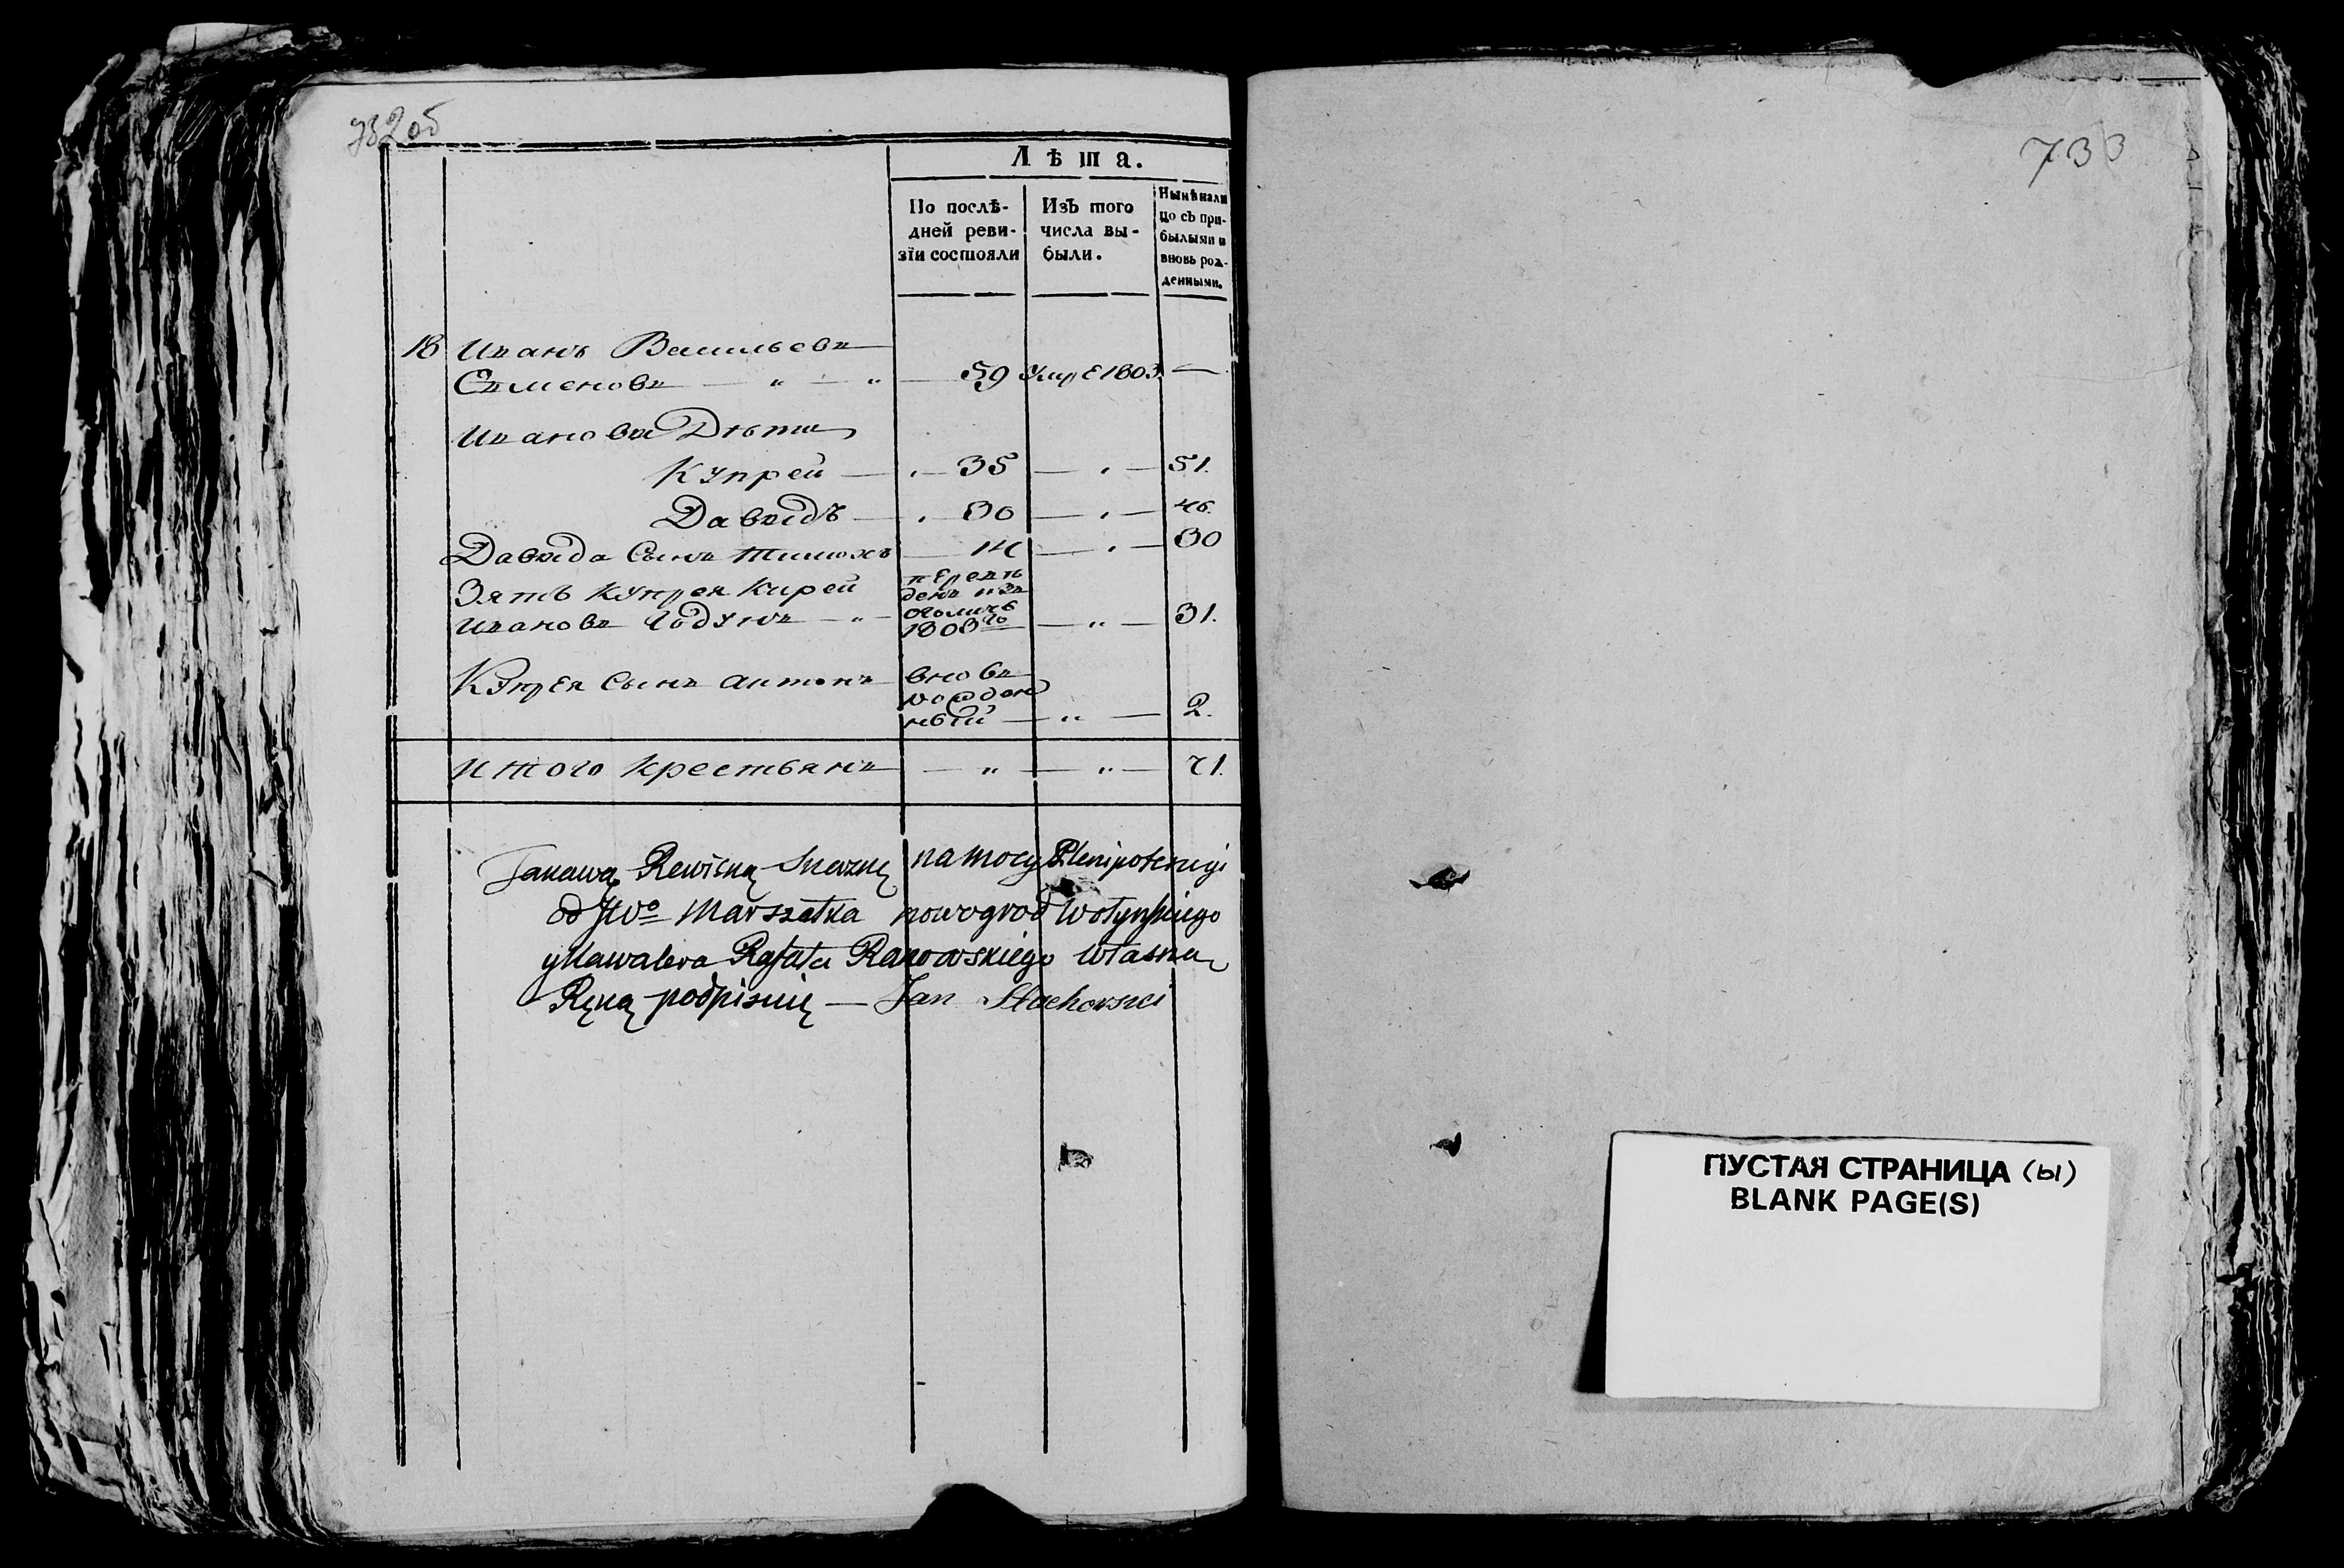 732об
Лѣта.
По послѣ-
дней реви-
зїи состояли
Изъ того
числа вы-
были.
Нынѣ нали
цо съ при-
былыми и
вновь рож-
денными.
18 Иванъ Васильевъ
Семеновъ — „ — „ — 59 Умре 1803. —
Ивана Дѣти
Купрей — . — 35 — . — 51.
Давидъ — . — 30 — . — 46.
Давида Сынъ Тимохъ — 14 — . — 30
Зять Купрея Кирей
Ивановъ — „ — 1808го — „ — 31.
Купрея Сынъ Антонъ вновь
рожден
ный — „ — 2.
Итого Крестьянъ — „ — „ — 71.
Rewisną na mocy Plenipotencyi
od JWo Marszałka nowogrod Wołyńskiego
y Kawalera Rafała własną
Ręką podpisuię — Jan
733
ПУСТАЯ СТРАНИЦА (ы)
BLANK PAGE(S)